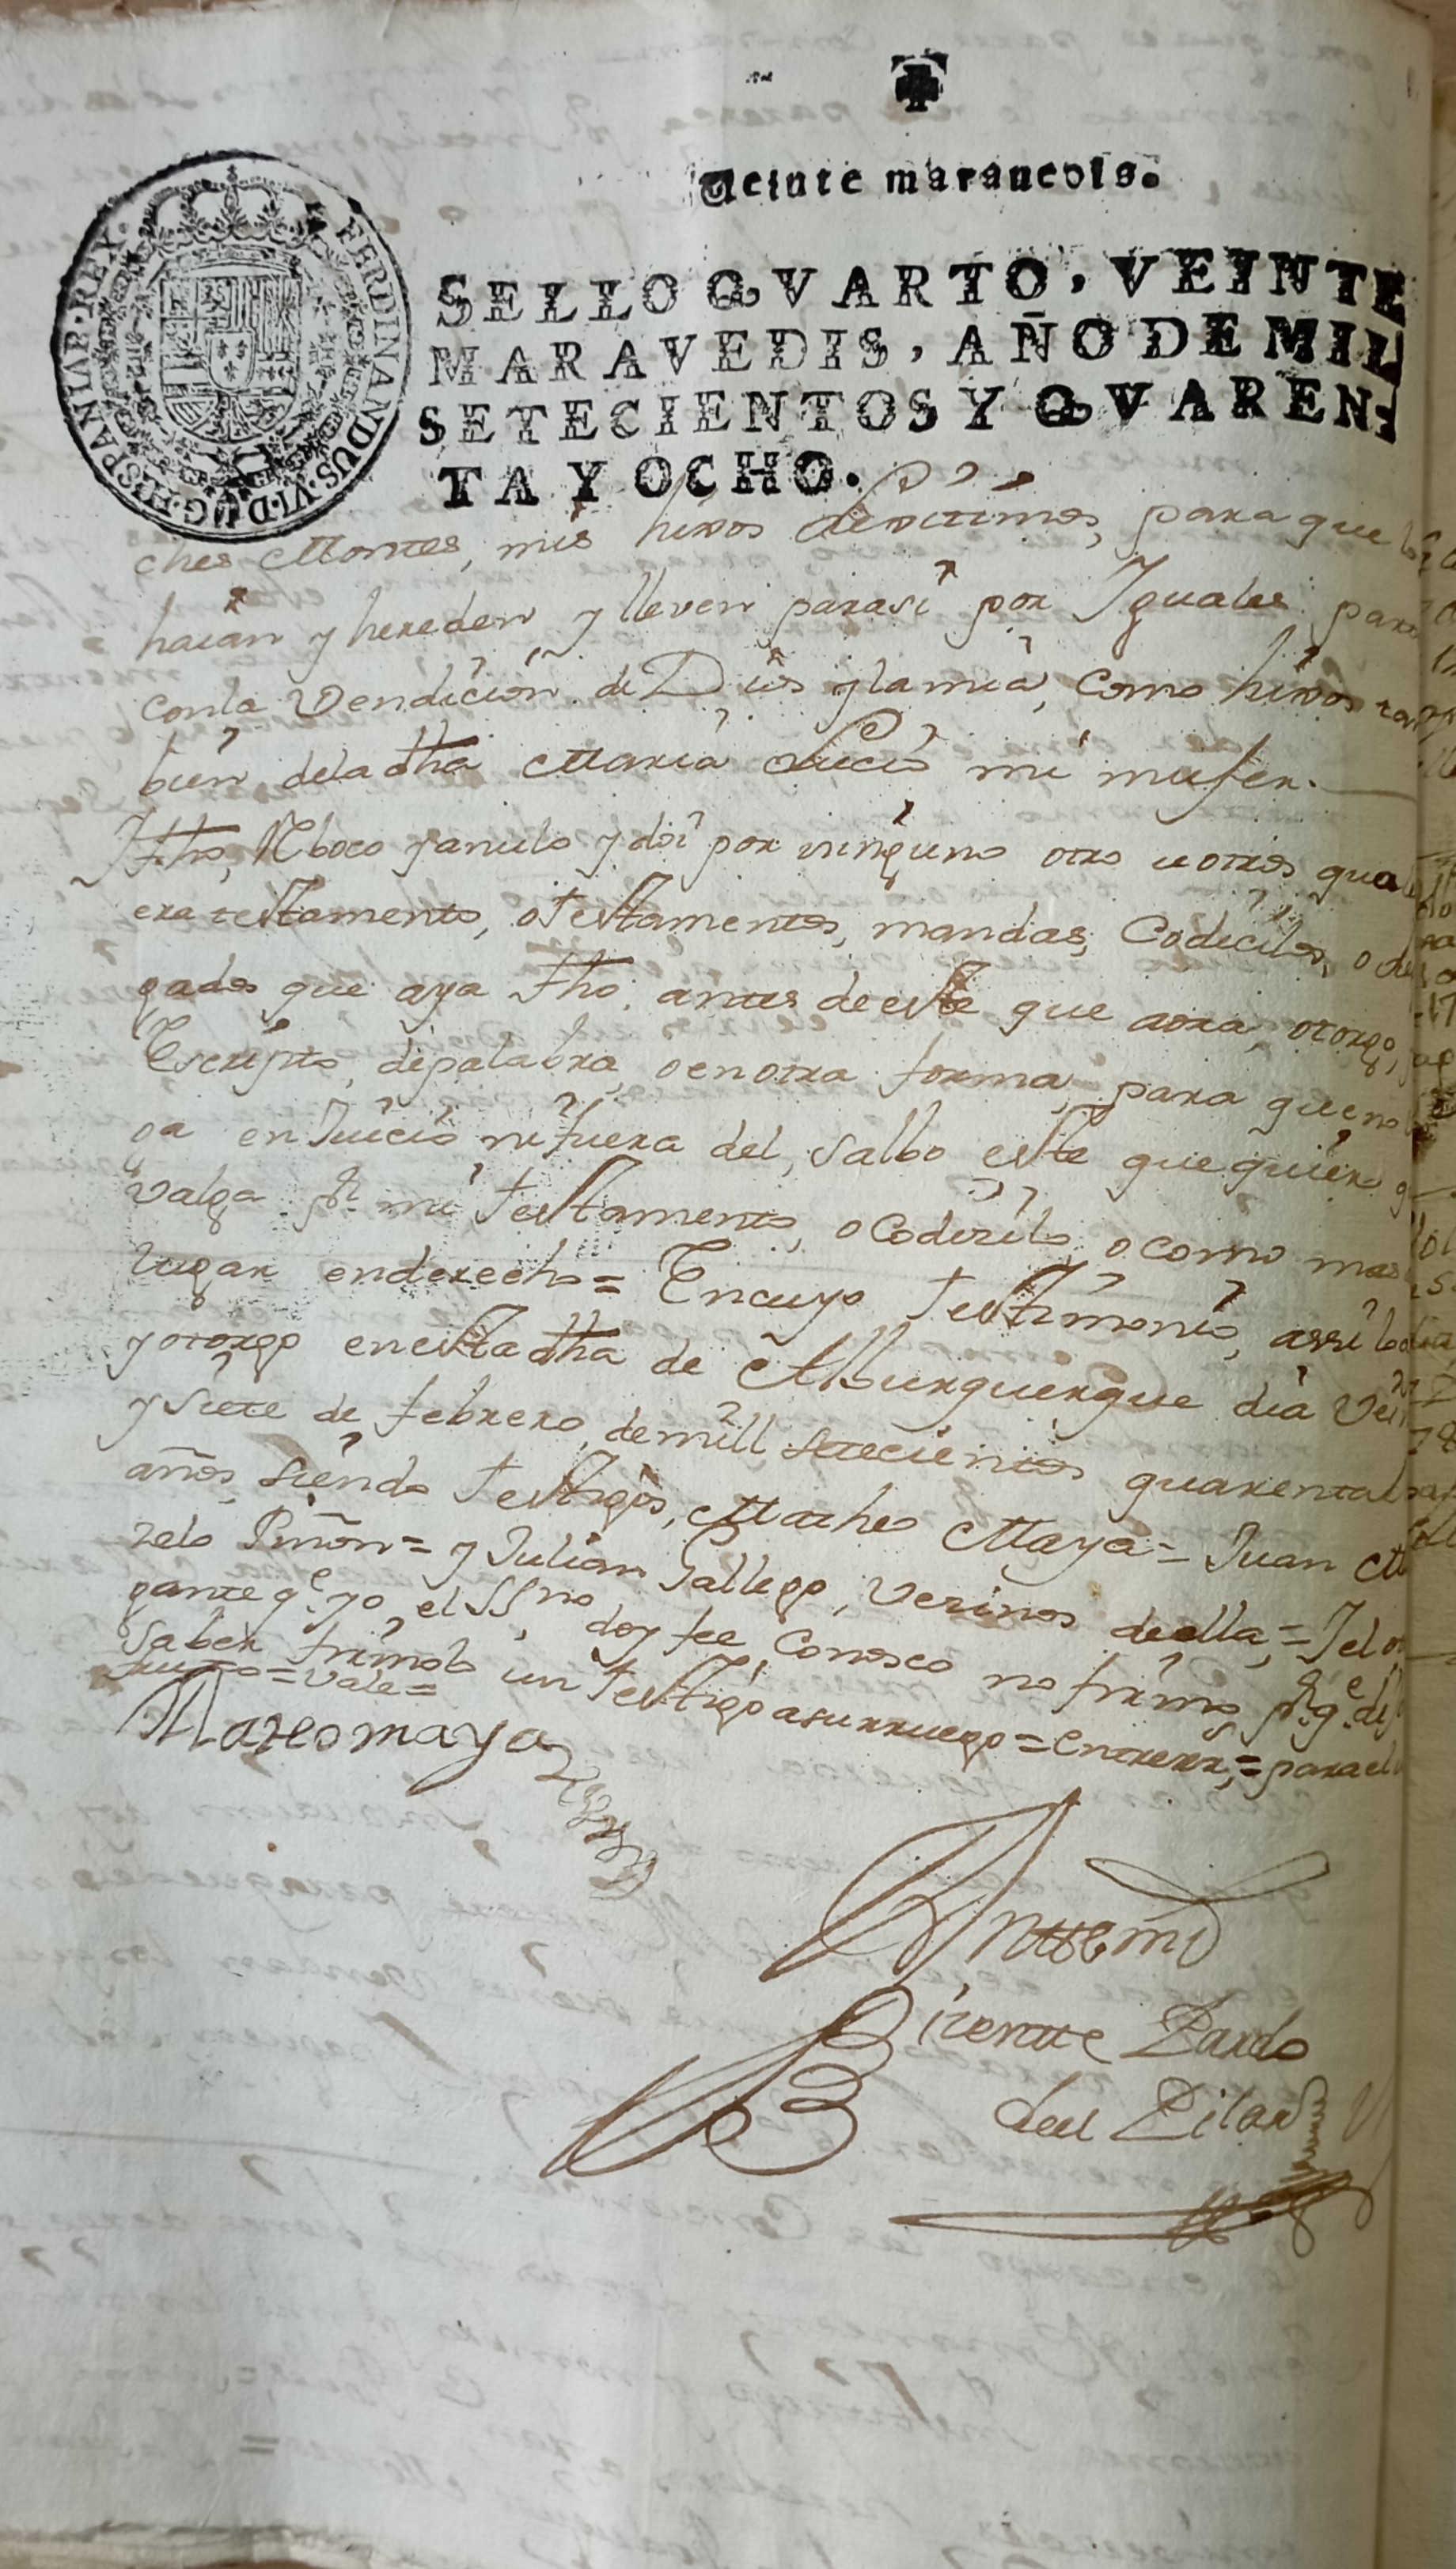 Veinte maravedis.
SELLO QVARTO, VEINTE
MARAVEDIS, AÑO DE MIL
SETECIENTOS Y QVAREN-
TA Y OCHO.
FERDINANDUS·VI·D·G·HISPANIAR·REX·
ches Montes, mis hixos lexitimos, para que
haian y hereden y lleven parasi por Iguales par
conla Vendicion de Dios y la mia, como hixos
bien dela dha Maria mi mujer.
Ytho, Reboco y anulo y doi por ninguno otro u otros qual
era testamento, o testamentos, mandas, Codicilos, o
gados que aya fho, antes de este que aora, otorgo,
Escripto, de palabra, o en otra forma, para que no
ga en Juicio ni fuera del, salbo este que quiero
Valga pr. mi testamento, o Codicilo, o como mas
lugar en derecho = En cuyo testimonio, assi lo
y otorgo en esta dha de Alburquerque dia Vein
y siete de febrero, de mill setecientos quarenta
años, siendo testigos, Matheo Maya = Juan
relo Piñon = y Julian Gallego, Vezinos de ella, = Y el
gante qe. yo, el SSno, doy fee, Conosco no firmo pr. qe. di
saber firmolo un testigo a su rruego = Entrerr, = para el
= Vale =
Mateo maya
Antte mi
Vizente Pardo
del Pilar